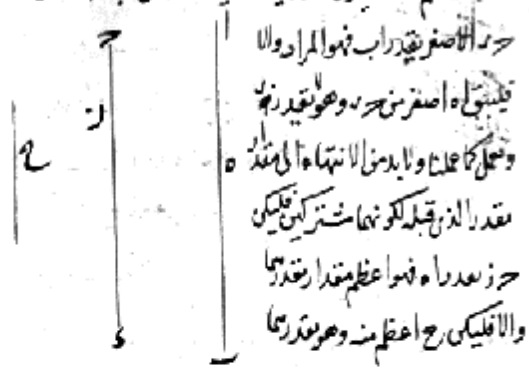 حد الاصغر يقدر اب فهو المراد والا
فليبق اه اصغر من حد وهو يقدر
ونعمل كما عملنا ولا بد من الانتهاء الى مقدار
يقدر الذى قبله لكونهما مشتركين فليكن
حز يقدر اه فهو اعظم مقدار يقدرهما
والا فليكن ح اعظم منه وهو يقدرهما
ا
ح
ز
ه
ح
د
ب